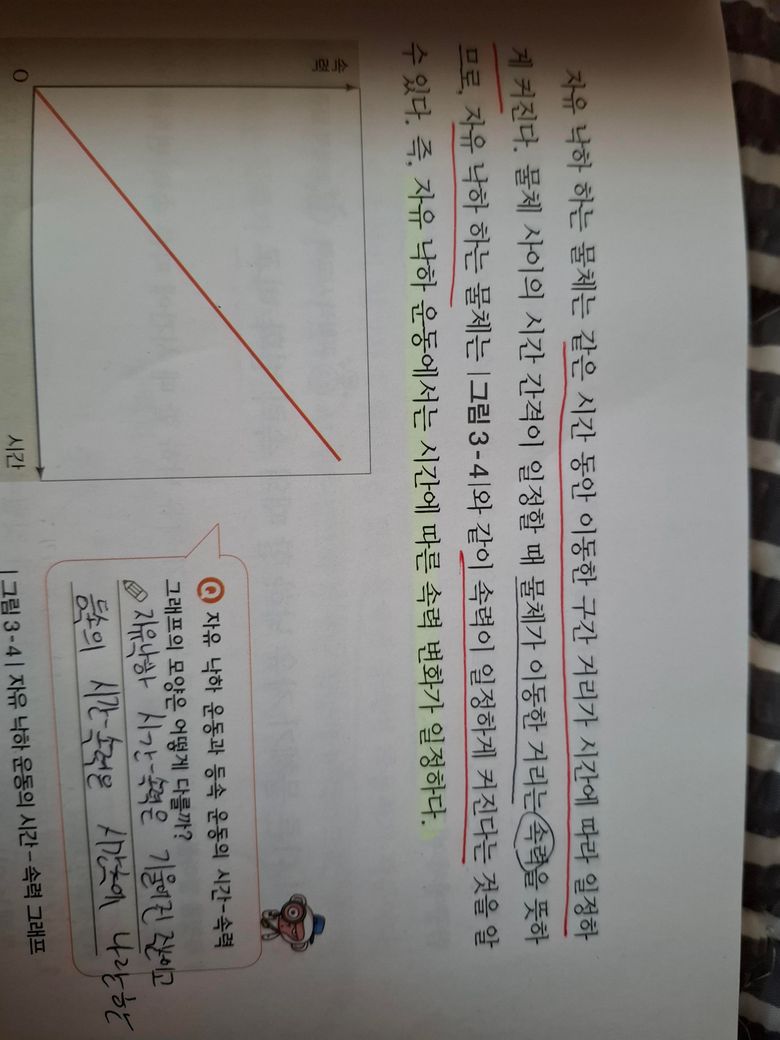 자유 낙하 하는 물체는 같은 시간 동안 이동한 구간 거리가 시간에 따라 일정하
게 커진다. 물체 사이의 시간 간격이 일정할 때 물체가 이동한 거리는 속력을 뜻하
므로, 자유 낙하 하는 물체는 |그림 3-4|와 같이 속력이 일정하게 커진다는 것을 알
수 있다. 즉, 자유 낙하 운동에서는 시간에 따른 속력 변화가 일정하다.
속력
O
시간
Q 자유 낙하 운동과 등속 운동의 시간-속력
그래프의 모양은 어떻게 다를까?
자유낙하 시간-속력은 기울어진 꼴이고
등속의 시간-속력은 시간축에 나란한
|그림 3-4| 자유 낙하 운동의 시간-속력 그래프